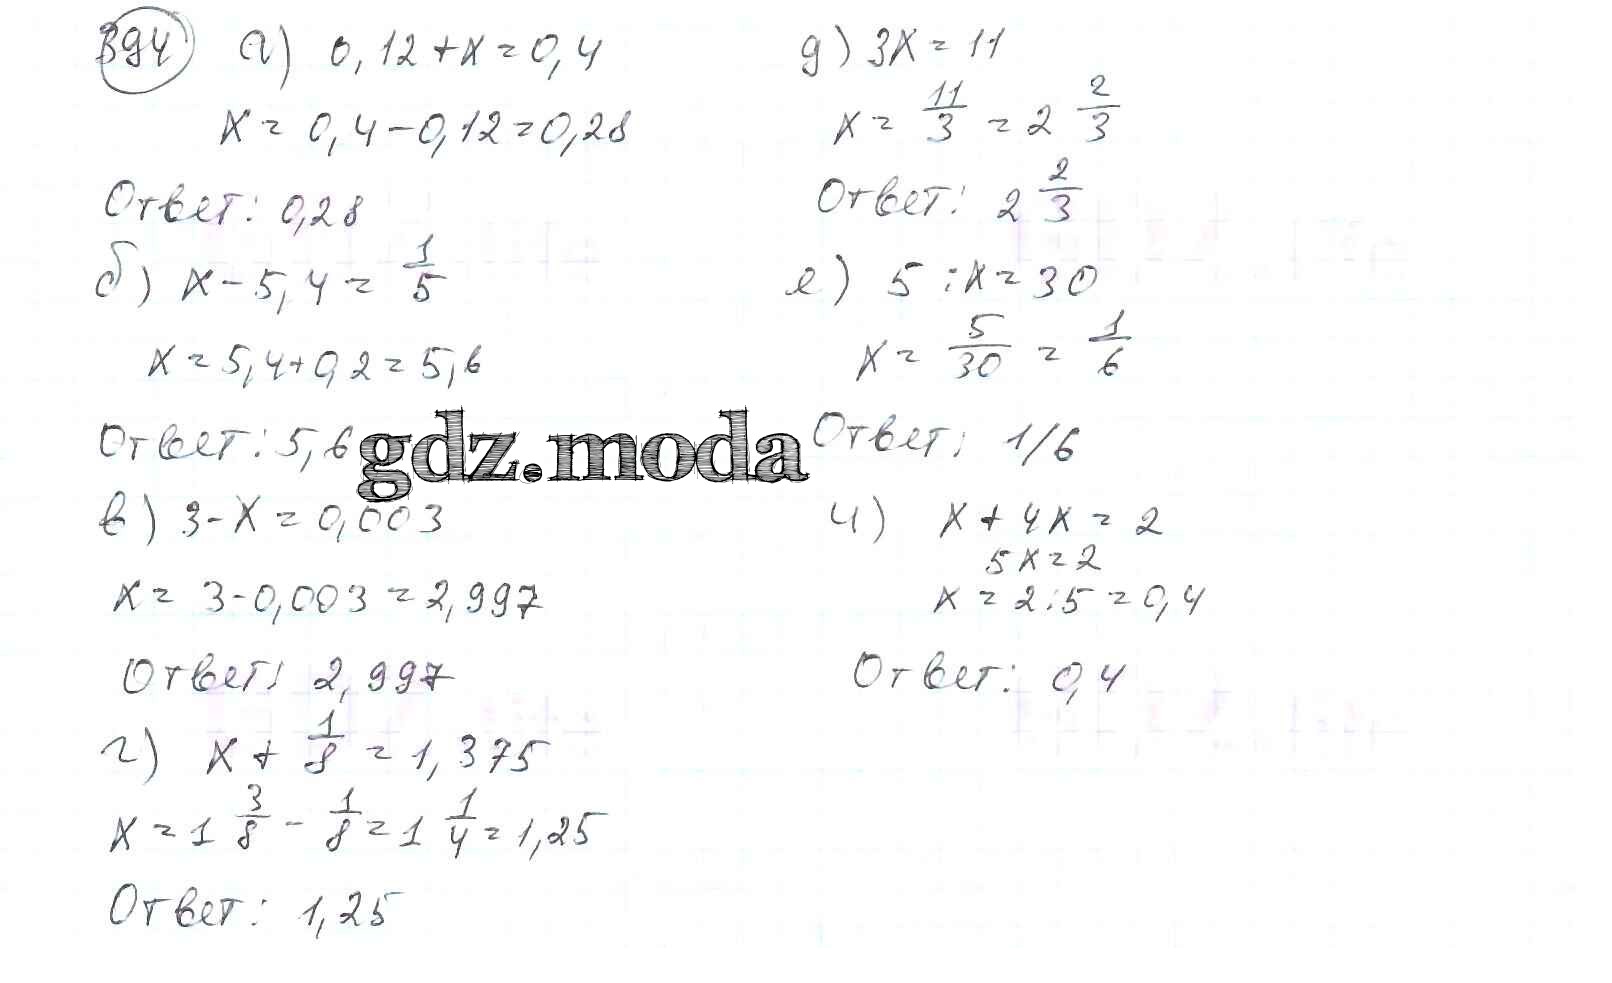 394 а) 0,12 + x = 0,4
x = 0,4 - 0,12 = 0,28
Ответ: 0,28
б) x - 5,4 = 1/5
x = 5,4 + 0,2 = 5,6
Ответ: 5,6
в) 3 - x = 0,003
x = 3 - 0,003 = 2,997
Ответ: 2,997
г) x + 1/8 = 1,375
x = 1 3/8 - 1/8 = 1 1/4 = 1,25
Ответ: 1,25
gdz.moda
д) 3x = 11
x = 11/3 = 2 2/3
Ответ: 2 2/3
е) 5 : x = 30
x = 5/30 = 1/6
Ответ: 1/6
и) x + 4x = 2
5x = 2
x = 2 : 5 = 0,4
Ответ: 0,4